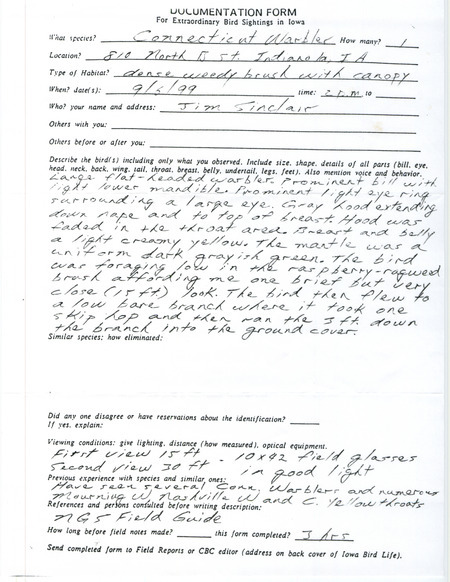 DOCUMENTATION FORM
For Extraordinary Bird Sightings in Iowa
What species? Connecticut Warbler How many? 1
Location? 810 North B St. Indianola, IA
Type of Habitat? dense weedy brush with canopy
When? date(s): 9/6/99 time: 2 p.m. to
Who? your name and address: Jim Sinclair
Others with you:
Others before or after you:
Describe the bird(s) including only what you observed. Include size, shape, details of all parts (bill, eye,
head, neck, back, wing, tail, throat, breast, belly, undertail, legs, feet). Also mention voice and behavior.
Large flat-headed warbler. Prominent bill with
light lower mandible. Prominent light eye ring
surrounding a large eye. Gray hood extending
down nape and to top of breast. Hood was
faded in the throat area. Breast and belly
a light creamy yellow. The mantle was a
uniform dark grayish green. The bird
was foraging low in the raspberry-ragweed
brush affording me one brief but very
close (15 ft) look. The bird then flew to
a low bare branch where it took one
skip hop and then ran the 3 ft. down
the branch into the ground cover.
Similar species: how eliminated:
Did any one disagree or have reservations about the identification?
If yes, explain:
Viewing conditions: give lighting, distance (how measured), optical equipment.
First view 15 ft - 10x42 field glasses
Second view 30 ft in good light
Previous experience with species and similar ones:
Have seen several Conn. Warblers and numerous
Mourning W, Nashville W and C. Yellowthroats
References and persons consulted before writing description:
NGS Field Guide
How long before field notes made? this form completed? 3 hrs
Send completed form to Field Reports or CBC editor (address on back cover of Iowa Bird Life).